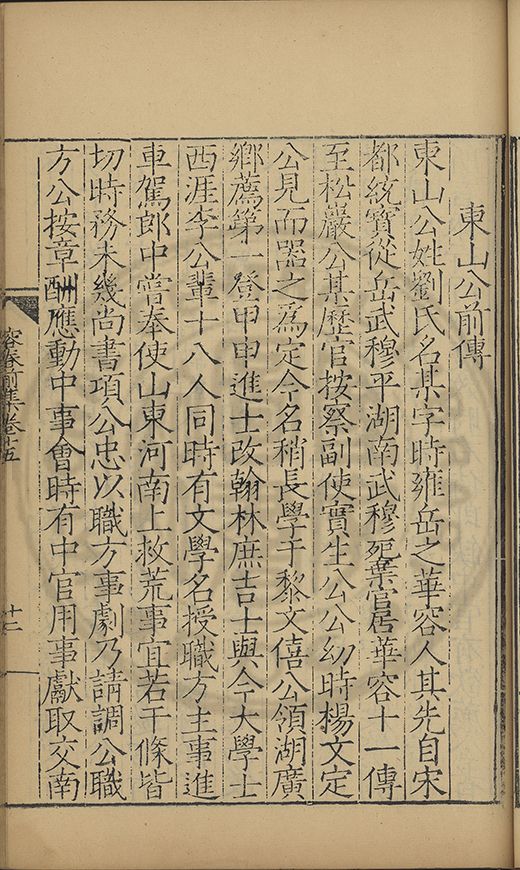 東山公前傳
東山公姓劉氏名某字時雍岳之華容人其先自宋
都統寶從岳武穆平湖南武穆死棄官居華容十一傳
至松巖公某歷官按察副使實生公公幼時楊文定
公見而器之爲定今名稍長學于黎文僖公領湖廣
鄉薦第一登甲申進士改翰林庶吉士與今大學士
西涯李公輩十八人同時有文學名授職方主事進
車駕郎中嘗奉使山東河南上救荒事宜若干條皆
切時務未幾尚書項公忠以職方事劇乃請調公職
方公按章酬應動中事會時有中官用事獻取交南
容春前集卷十五
十二